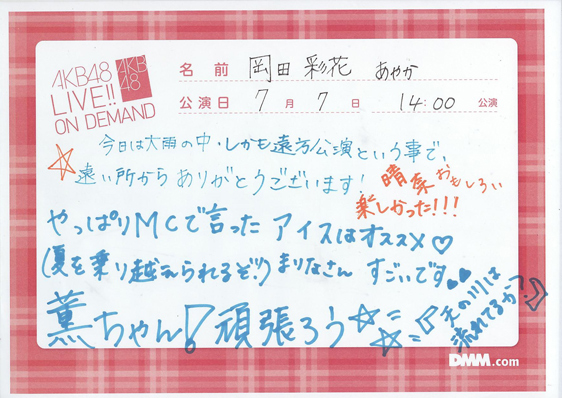 AKB48
LIVE!!
ON DEMAND
AKB
48
名前 岡田彩花 あやか
公演日 7月7日 14:00 公演
今日は大雨の中・しかも遠方公演という事で、
遠い所から ありがとうございます!
晴菜 おもしろい
楽しかった!!!
やっぱりMCで言った アイスはオススメ♡
(夏を乗り越えられるぞ!!) まりなさん すごいです♥♥
薫ちゃん!頑張ろう☆☆
=『天の川は
流れてるか?』
DMM.com